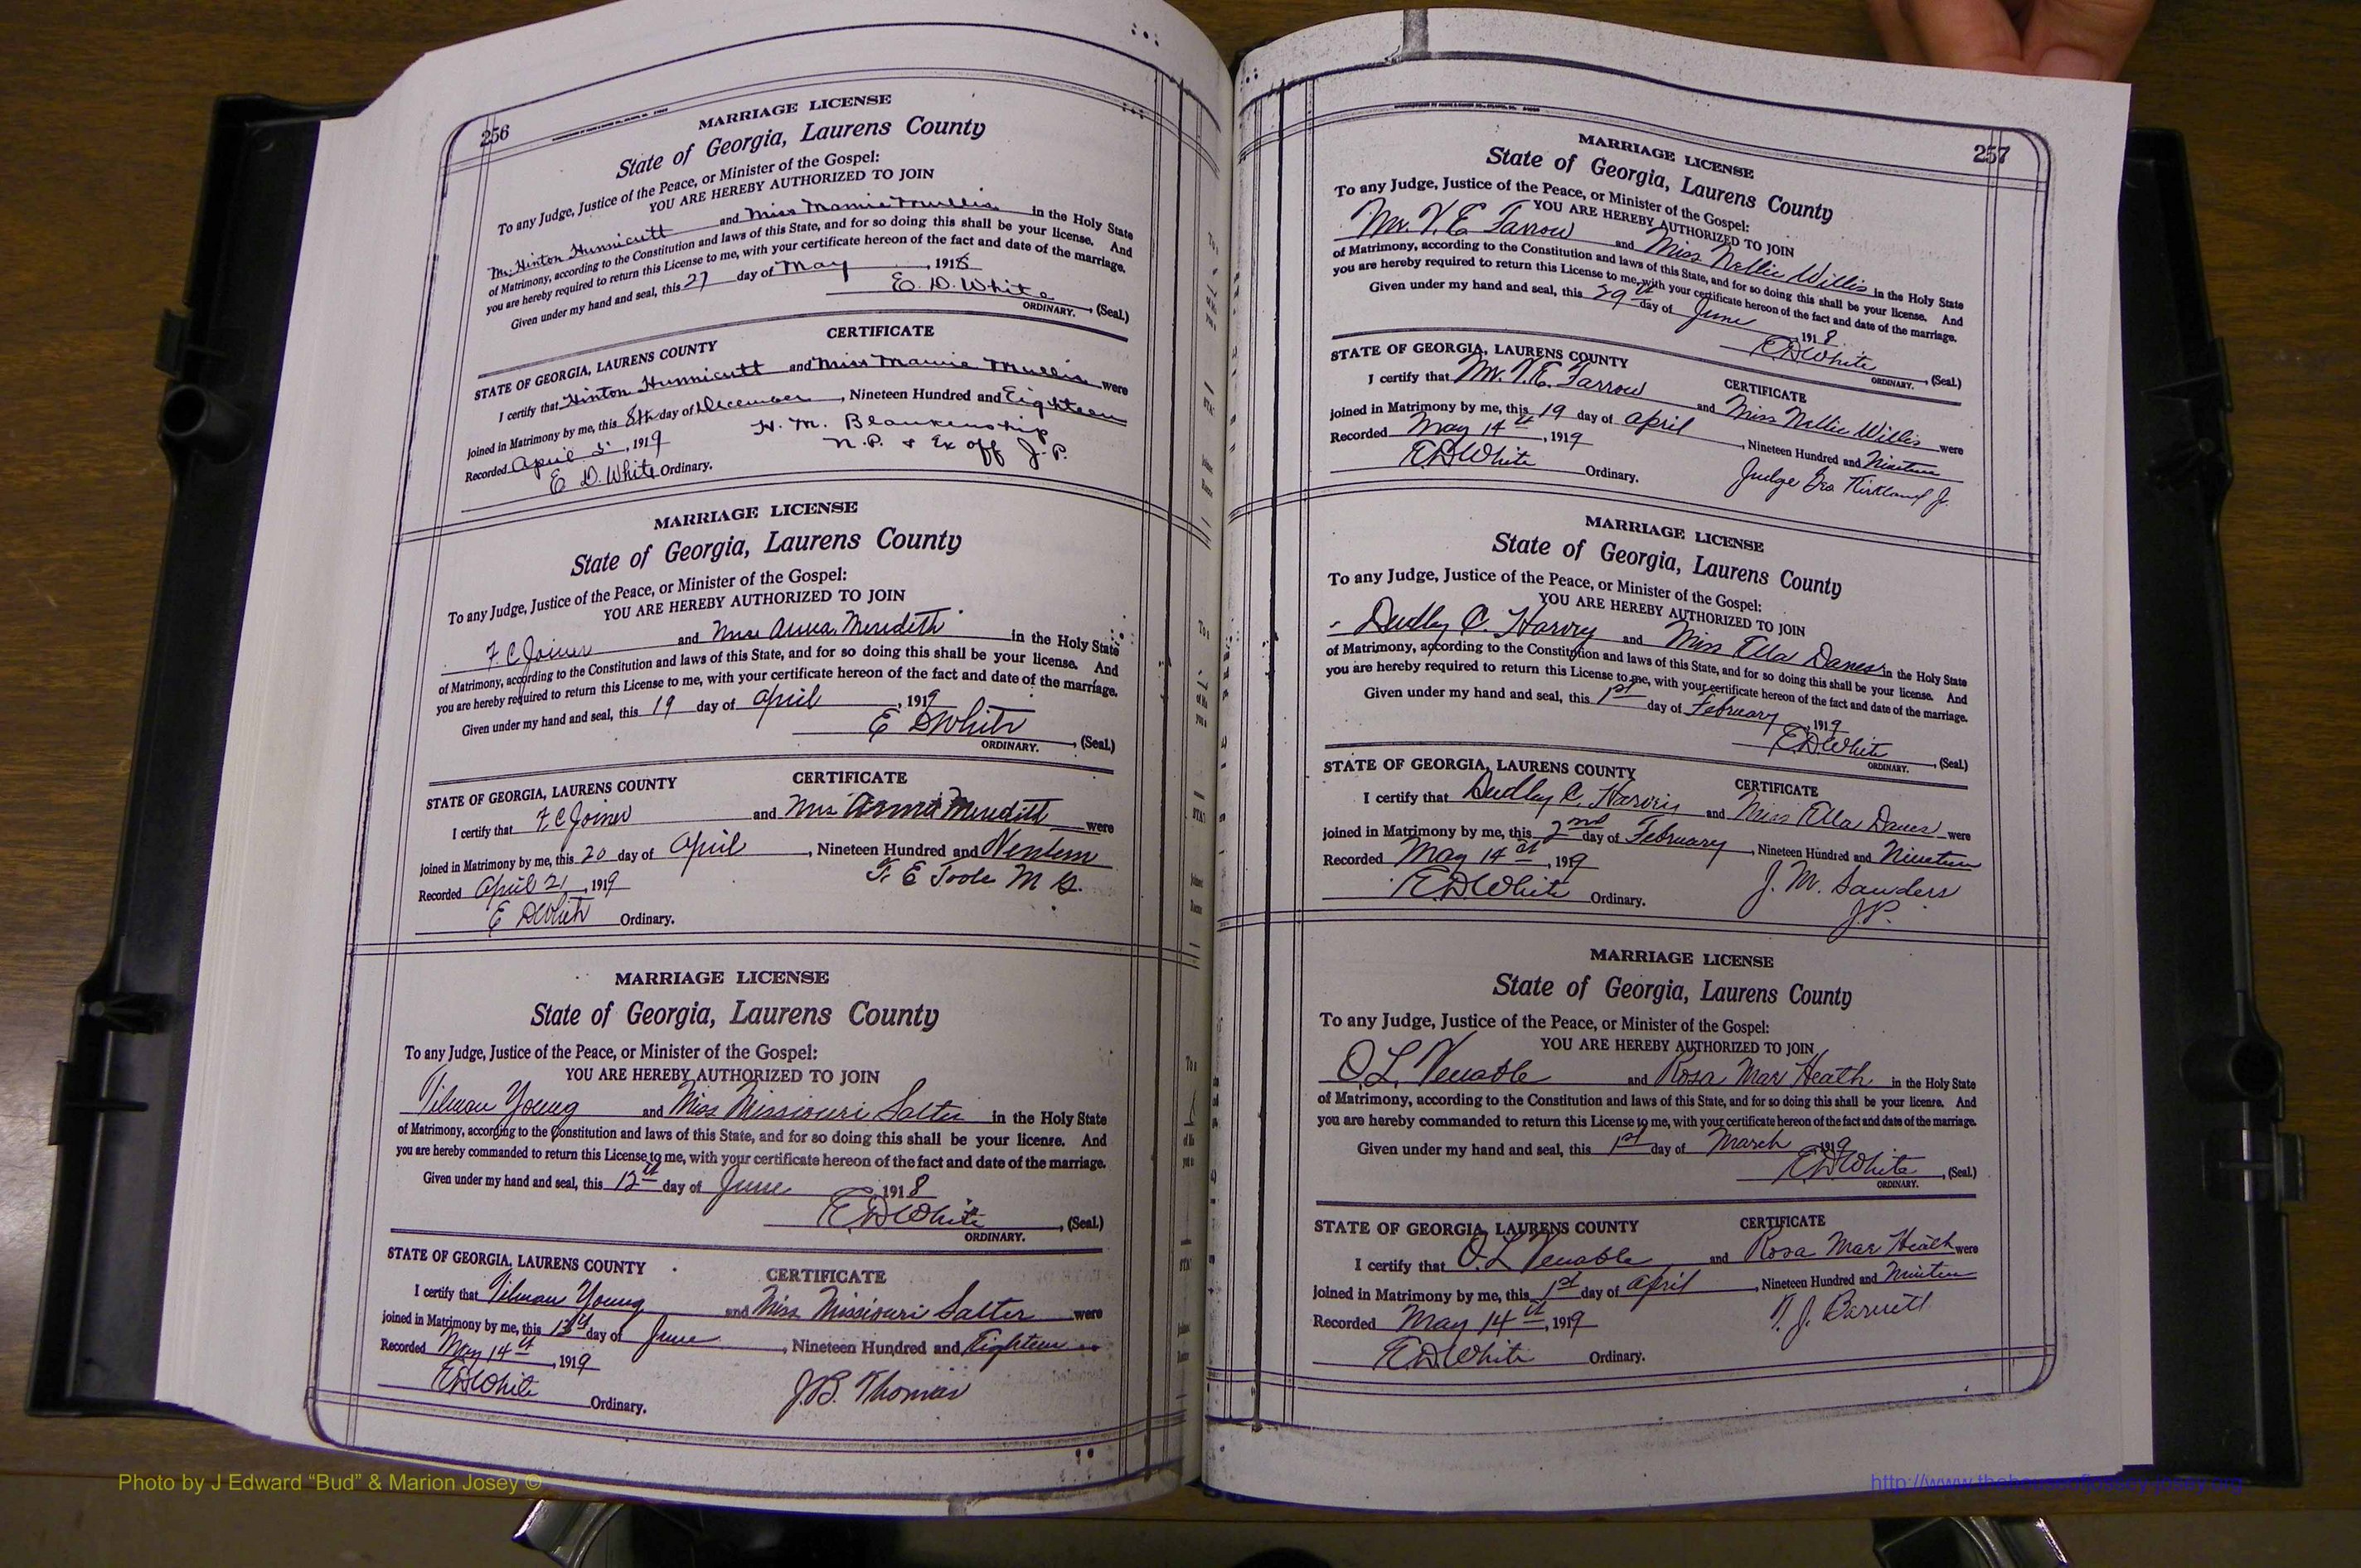 256
MARRIAGE LICENSE
State of Georgia, Laurens County
To any Judge, Justice of the Peace, or Minister of the Gospel:
YOU ARE HEREBY AUTHORIZED TO JOIN
Mr. Hinton Hunnicutt and Miss Mamie Mullis in the Holy State
of Matrimony, according to the Constitution and laws of this State, and for so doing this shall be your license. And
you are hereby required to return this License to me, with your certificate hereon of the fact and date of the marriage.
Given under my hand and seal, this 27 day of May, 1918
E. D. White, (Seal.)
ORDINARY.
CERTIFICATE
STATE OF GEORGIA, LAURENS COUNTY
I certify that Hinton Hunnicutt and Miss Mamie Mullis were
joined in Matrimony by me, this 8th day of December, Nineteen Hundred and Eighteen
Recorded April 5, 1919
H. M. Blankenship
N. P. & Ex off J. P.
E. D. White Ordinary.
MARRIAGE LICENSE
State of Georgia, Laurens County
To any Judge, Justice of the Peace, or Minister of the Gospel:
YOU ARE HEREBY AUTHORIZED TO JOIN
F. C Joiner and Mrs Anna Meredith in the Holy State
of Matrimony, according to the Constitution and laws of this State, and for so doing this shall be your license. And
you are hereby required to return this License to me, with your certificate hereon of the fact and date of the marriage.
Given under my hand and seal, this 19 day of April, 1919
E D White, (Seal.)
ORDINARY.
CERTIFICATE
STATE OF GEORGIA, LAURENS COUNTY
I certify that F C Joiner and Mrs Anna Meredith were
joined in Matrimony by me, this 20 day of April, Nineteen Hundred and
Recorded April 21, 1919
E Toole M G.
E D White Ordinary.
MARRIAGE LICENSE
State of Georgia, Laurens County
To any Judge, Justice of the Peace, or Minister of the Gospel:
YOU ARE HEREBY AUTHORIZED TO JOIN
Tilman Young and Miss Missiouri Salter in the Holy State
of Matrimony, according to the Constitution and laws of this State, and for so doing this shall be your license. And
you are hereby commanded to return this License to me, with your certificate hereon of the fact and date of the marriage.
Given under my hand and seal, this 12th day of June, 1918
E D White, (Seal.)
ORDINARY.
STATE OF GEORGIA, LAURENS COUNTY
CERTIFICATE
I certify that Tilman Young and Miss Missiouri Salter were
joined in Matrimony by me, this 13th day of June, Nineteen Hundred and Eighteen
Recorded May 14th, 1919
E D White Ordinary.
J.B. Thomas
257
MARRIAGE LICENSE
State of Georgia, Laurens County
To any Judge, Justice of the Peace, or Minister of the Gospel:
YOU ARE HEREBY AUTHORIZED TO JOIN
Mr. V. E. Farrow and Miss Nellie Willis in the Holy State
of Matrimony, according to the Constitution and laws of this State, and for so doing this shall be your license. And
you are hereby required to return this License to me, with your certificate hereon of the fact and date of the marriage.
Given under my hand and seal, this 29th day of June, 1918
E D White, (Seal.)
ORDINARY.
STATE OF GEORGIA, LAURENS COUNTY
CERTIFICATE
I certify that Mr. V. E. Farrow and Miss Nellie Willis were
joined in Matrimony by me, this 19 day of April, Nineteen Hundred and Nineteen
Recorded May 14th, 1919
E D White Ordinary.
Judge Geo Kirkland
MARRIAGE LICENSE
State of Georgia, Laurens County
To any Judge, Justice of the Peace, or Minister of the Gospel:
YOU ARE HEREBY AUTHORIZED TO JOIN
Dudley C. and Miss Ella in the Holy State
of Matrimony, according to the Constitution and laws of this State, and for so doing this shall be your license. And
you are hereby required to return this License to me, with your certificate hereon of the fact and date of the marriage.
Given under my hand and seal, this 1st day of February, 1919
E D White, (Seal.)
ORDINARY.
STATE OF GEORGIA, LAURENS COUNTY
CERTIFICATE
I certify that Dudley C. and Miss Ella were
joined in Matrimony by me, this 2nd day of February, Nineteen Hundred and Nineteen
Recorded May 14th, 1919
E D White Ordinary.
J. M. Sanders
J.P.
MARRIAGE LICENSE
State of Georgia, Laurens County
To any Judge, Justice of the Peace, or Minister of the Gospel:
YOU ARE HEREBY AUTHORIZED TO JOIN
O. L. Venable and Rosa Mae Heath in the Holy State
of Matrimony, according to the Constitution and laws of this State, and for so doing this shall be your license. And
you are hereby commanded to return this License to me, with your certificate hereon of the fact and date of the marriage.
Given under my hand and seal, this 1st day of March 1919
E D White, (Seal.)
ORDINARY.
STATE OF GEORGIA, LAURENS COUNTY
CERTIFICATE
I certify that O. L Venable and Rosa Mae Heath were
joined in Matrimony by me, this 1st day of April, Nineteen Hundred and Nineteen
Recorded May 14th, 1919
J. Barnett
E D White Ordinary.
Photo by J Edward “Bud” & Marion Josey ©
http://www.thehouseofjossey-josey.org